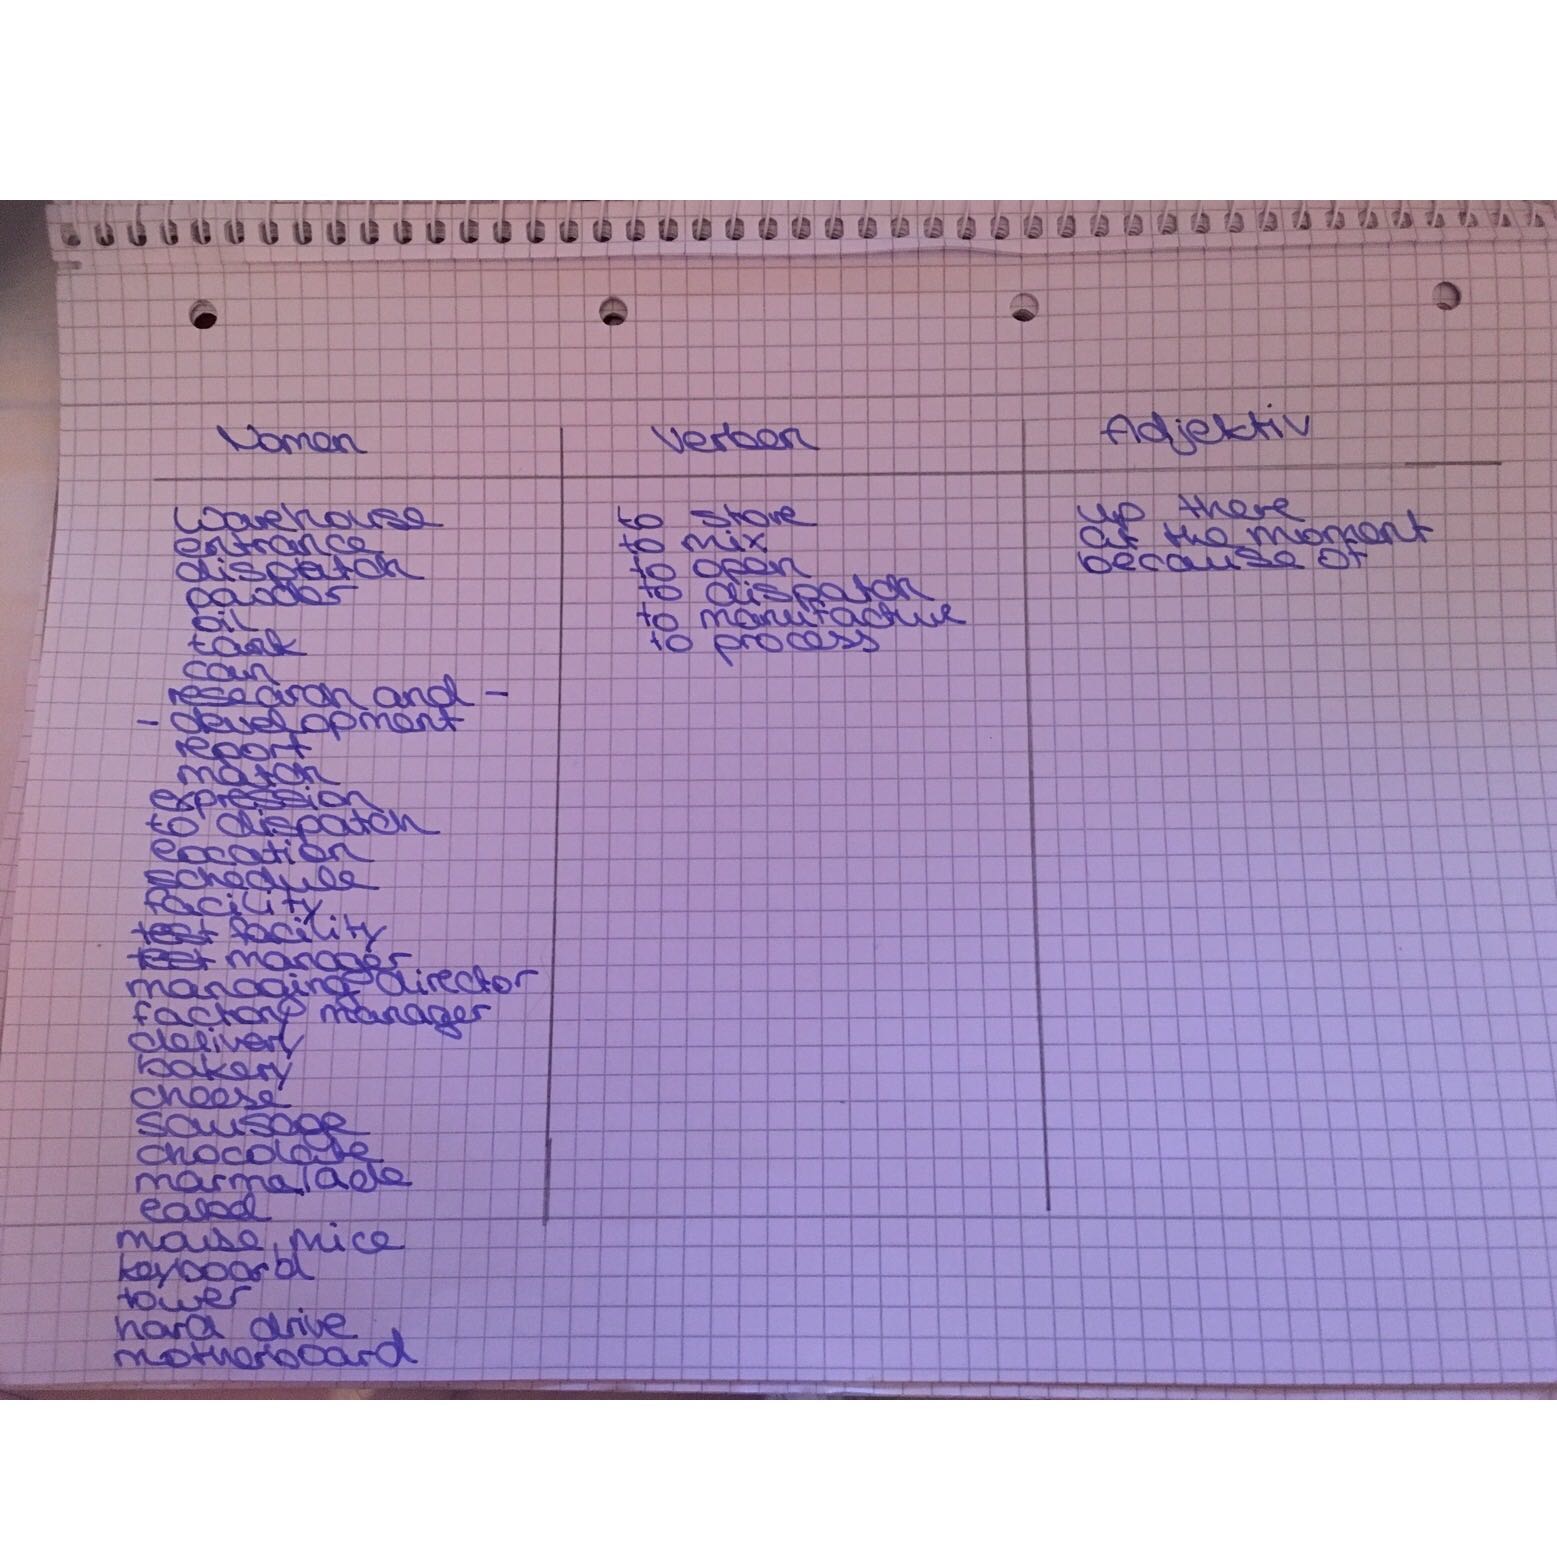 Nomen
Verben
Adjektiv
warehouse
entrance
dispatch
oil
tank
can
research and -
- development
report
match
expression
to dispatch
location
schedule
facility
test facility
test manager
managing director
factory manager
delivery
bakery
cheese
sausage
chocolate
marmalade
mouse, mice
keyboard
tower
hard drive
motherboard
to store
to mix
to open
to dispatch
to
to process
up there
at the moment
because of